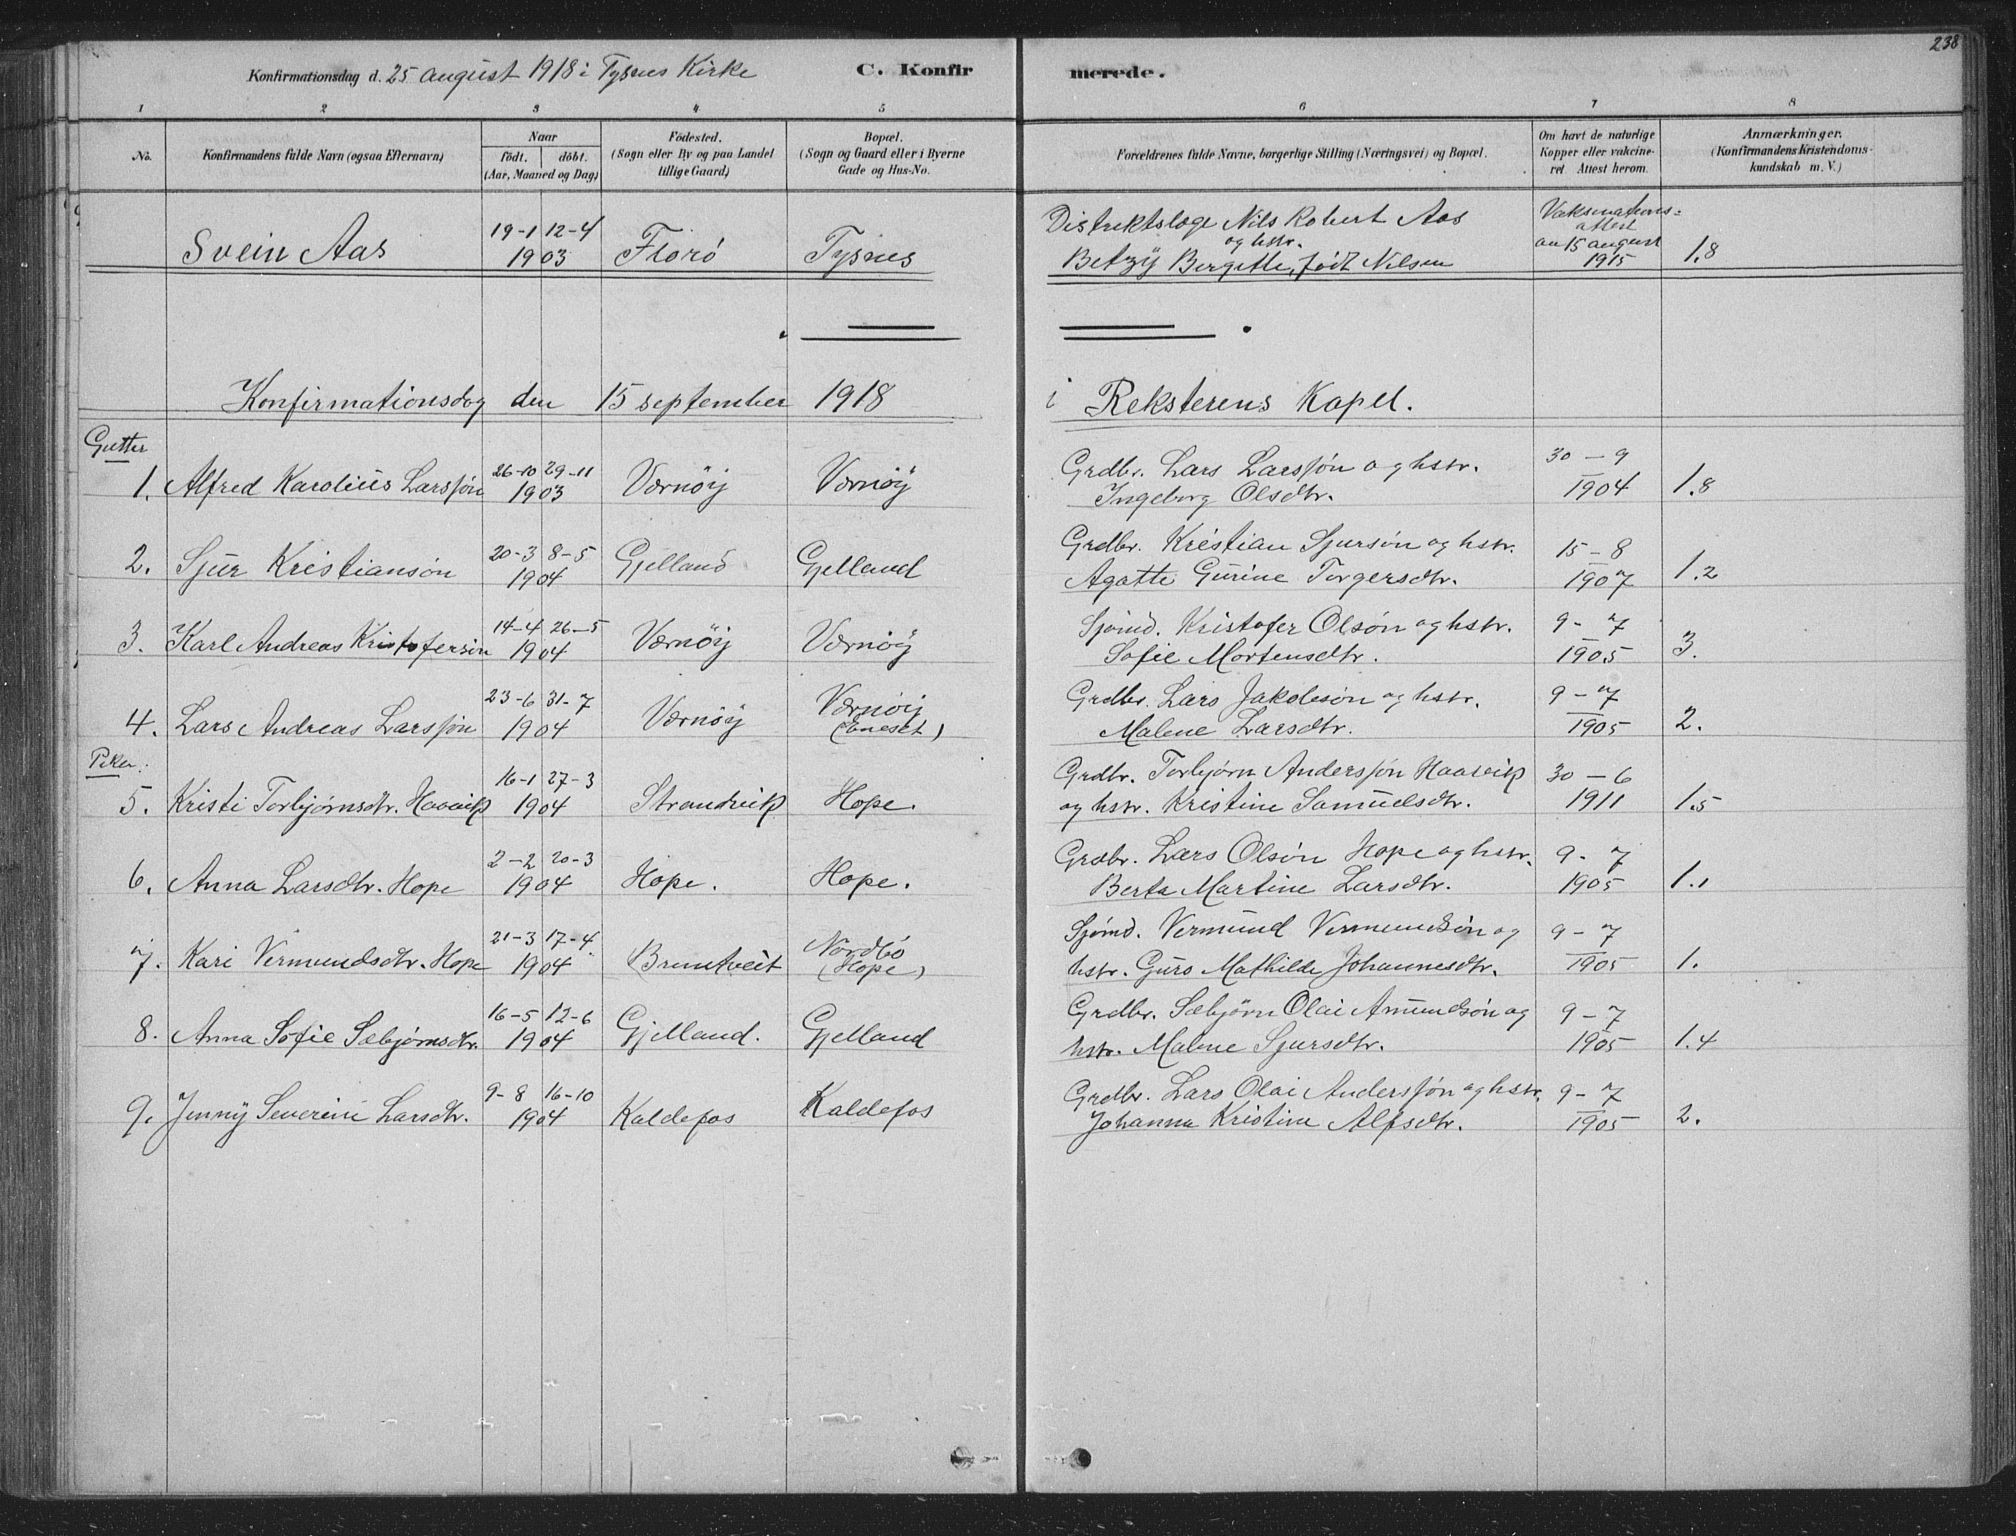 238
Konfirmationsdag d. 25 august 1918 i Tysnes Kirke C. Konfirmerede.
1 2 3 4 5 6 7 8
No. Konfirmandens fulde Navn (ogsaa Efternavn) Naar födt. döbt. (Aar, Maaned og Dag) Födested. (Sogn eller By og paa Landet tillige Gaard) Bopæl. (Sogn og Gaard eller i Byerne Gade og Hus-No. Forældrenes fulde Navne, borgerlige Stilling (Næringsvei) og Bopæl. Om havt de naturlige Kopper eller vakcineret. Attest herom. Anmærkninger. (Konfirmandens Kristendomskundskab m. V.)
Svein Aas 19-1 12-4 1903 Florø Tysnes Distriktslæge Nils Robert Aas og hstr. Betzy Bergitte, født Nilsen Vaksinationsattest av 15 august 1915 1.8
Konfirmationsdag den 15 september 1918 i Reksterens Kapel.
Gutter
1. Alfred Karolius Larssøn 26-10 29-11 1903 Værnøy Værnøy Grdbr. Lars Larssøn og hstr. Ingeborg Olsdtr. 30-9 1904 1.8
2. Sjur Kristiansøn 20-3 8-5 1904 Gjelland Gjelland Grdbr. Kristian Sjursøn og hstr. Agatte Gurine Torgersdtr. 15-8 1907 1.2
3. Karl Andreas Kristofersøn 14-4 26-5 1904 Værnøy Værnøy Sjømd. Kristofer Olsøn og hstr. Sofie Mortensdtr. 9-7 1905 3.
4. Lars Andreas Larssøn 23-6 31-7 1904 Værnøy Værnøy (Eneset) Grdbr. Lars Jakobsøn og hstr. Malene Larsdtr. 9-7 1905 2.
Piker:
5. Kristi Torbjørnsdtr. Haavik 16-1 27-3 1904 Strandvik Hope. Grdbr. Torbjørn Anderssøn Haavik og hstr. Kristine Samuelsdtr. 30-6 1911 1.5
6. Anna Larsdtr. Hope 2-2 20-3 1904 Hope. Hope. Grdbr. Lars Olsøn Hope og hstr. Berta Martine Larsdtr. 9-7 1905 1.1
7. Kari Vermundsdtr. Hope 21-3 17-4 1904 Bruntveit Nordbø (Hope) Sjømd. Vermund Vermundsøn og hstr. Guro Mathilde Johannesdtr. 9-7 1905 1.
8. Anna Sofie Sæbjørnsdtr. 16-5 12-6 1904 Gjelland. Gjelland Grdbr. Sæbjørn Olai Amundsøn og hstr. Malene Sjursdtr. 9-7 1905 1.4
9. Jenny Severine Larsdtr. 9-8 16-10 1904 Kaldefos Kaldefos Grdbr. Lars Olai Anderssøn og hstr. Johanna Kristine Alfsdtr. 9-7 1905 2.